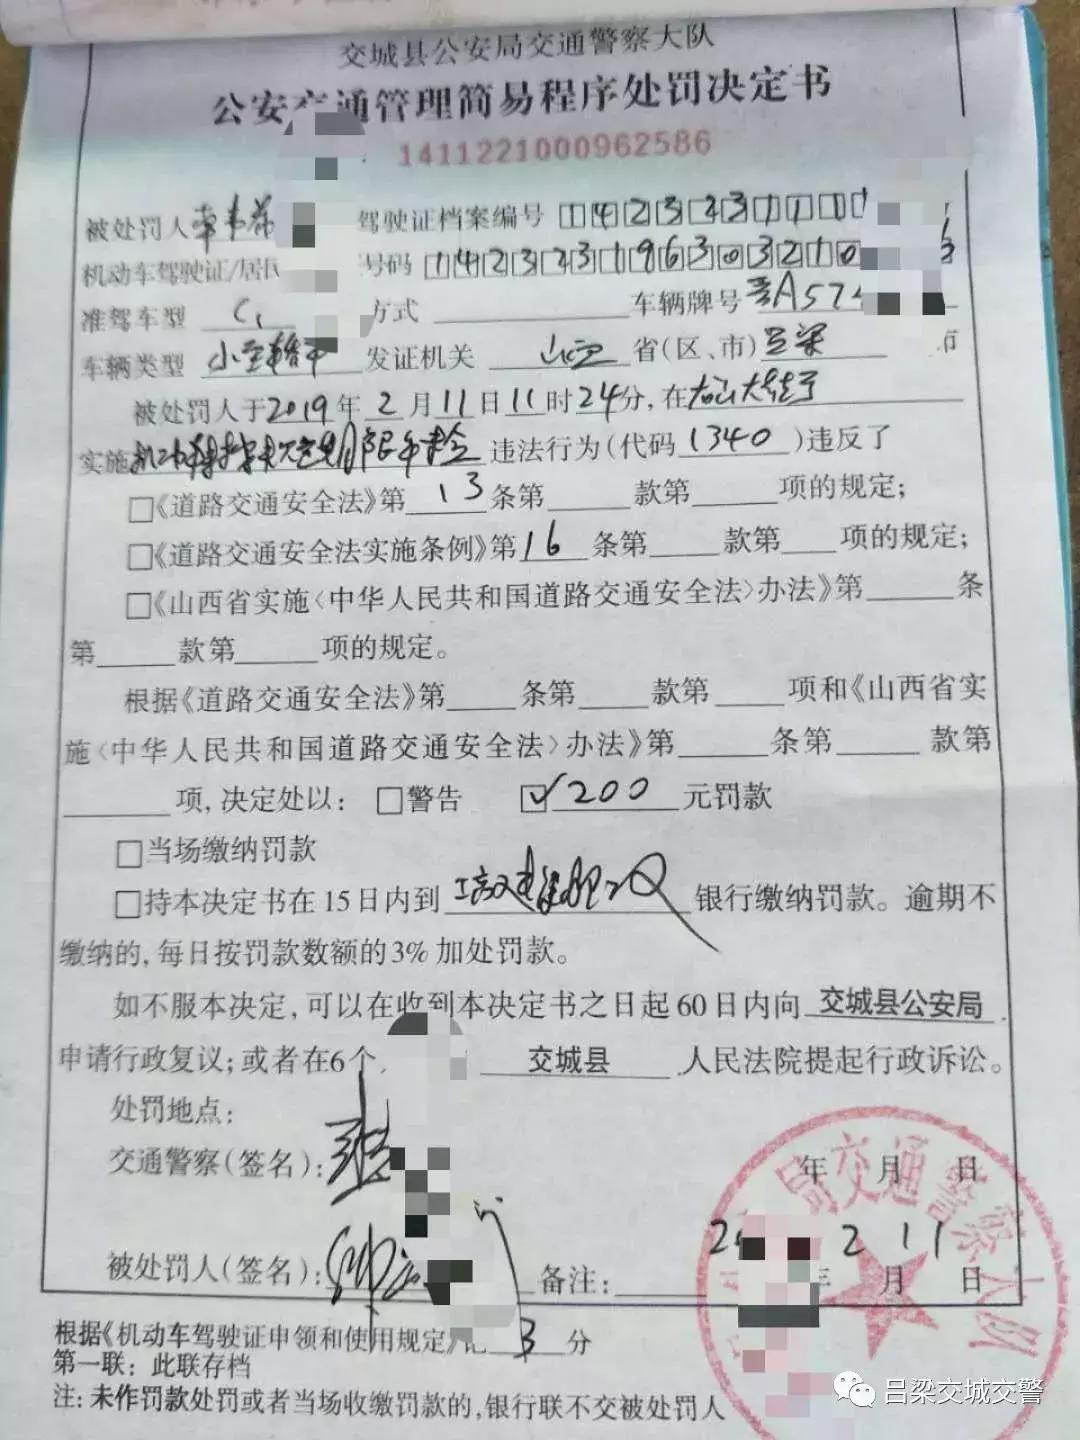 交城县公安局交通警察大队
公安交通管理简易程序处罚决定书
1411221000962586
被处罚人 驾驶证档案编号 1423231110
机动车驾驶证/居民 号码 142323196303210
准驾车型 C1 方式 车辆牌号 晋A57
车辆类型 小型轿车 发证机关 山西 省(区、市) 吕梁 市
被处罚人于2019年2月11日11时24分,在
实施 违法行为(代码1340)违反了
□《道路交通安全法》第13条第 款第 项的规定;
□《道路交通安全法实施条例》第16条第 款第 项的规定;
□《山西省实施〈中华人民共和国道路交通安全法〉办法》第 条
第 款第 项的规定。
根据《道路交通安全法》第 条第 款第 项和《山西省实
施〈中华人民共和国道路交通安全法〉办法》第 条第 款第
项,决定处以: □警告 ☑200元罚款
□当场缴纳罚款
□持本决定书在15日内到 银行缴纳罚款。逾期不
缴纳的,每日按罚款数额的3%加处罚款。
如不服本决定,可以在收到本决定书之日起60日内向 交城县公安局
申请行政复议;或者在6个 交城县 人民法院提起行政诉讼。
处罚地点:
交通警察(签名): 年 月 日
被处罚人(签名): 备注: 2 年 2 月 11 日
局交通警察大队
根据《机动车驾驶证申领和使用规定》记 3 分
第一联: 此联存档
注: 未作罚款处罚或者当场收缴罚款的,银行联不交被处罚人
吕梁交城交警